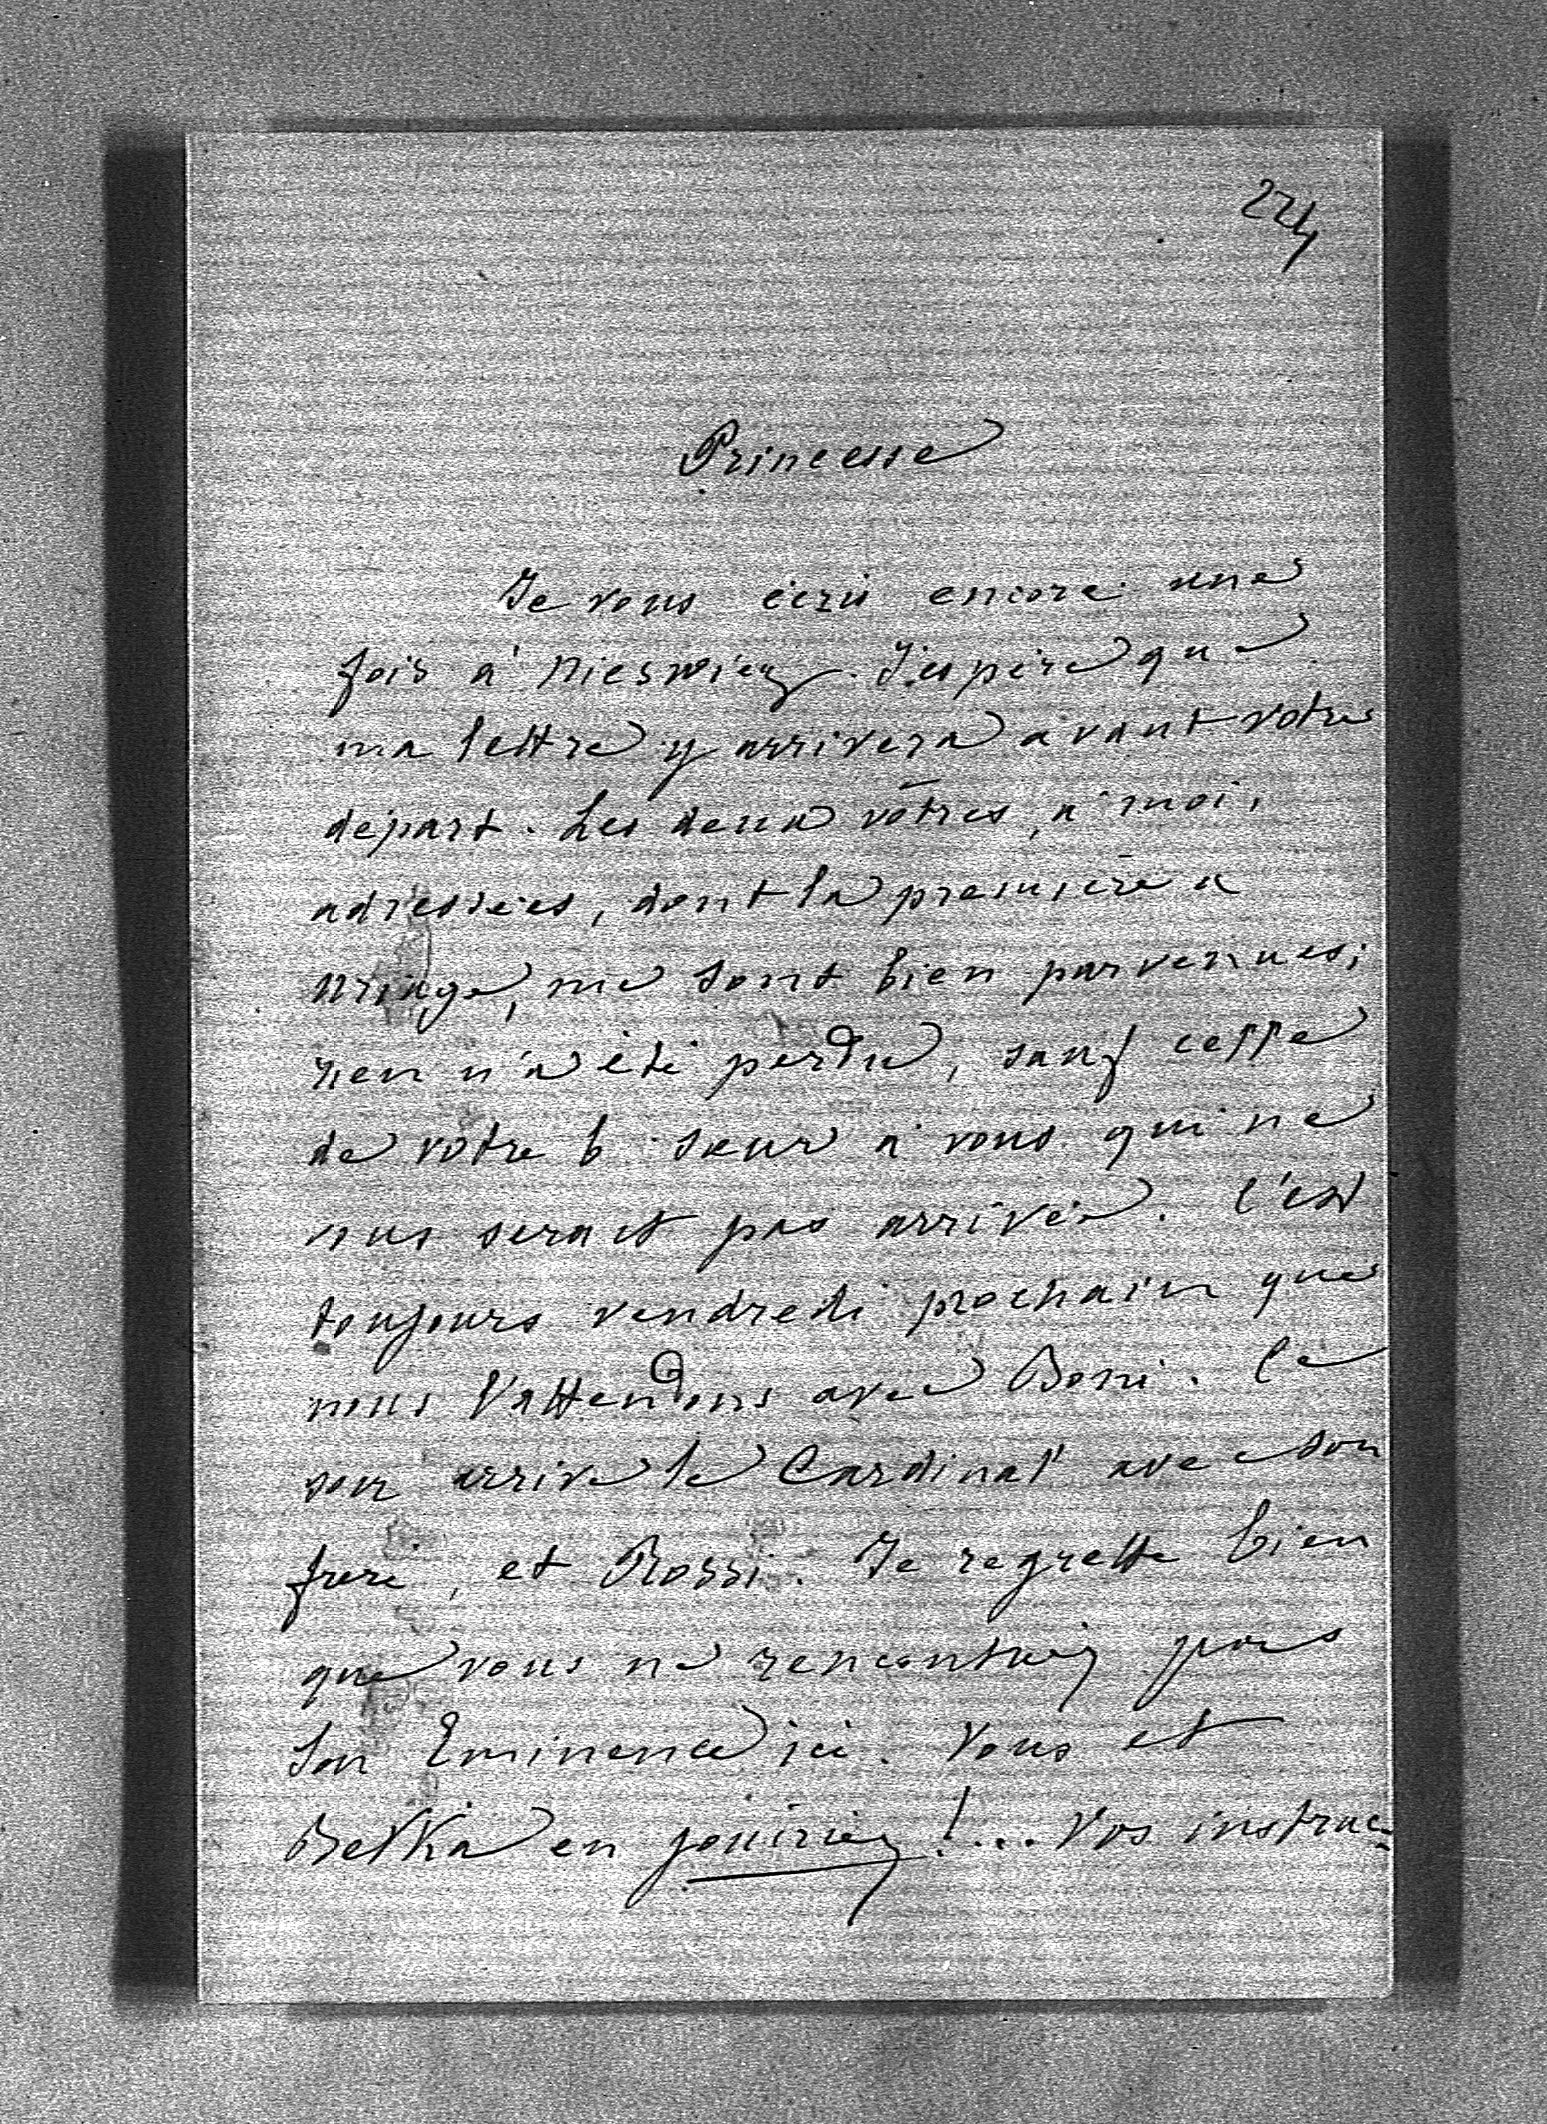 224
Princesse
Je vous écris encore une
fois à Nieswież. J'espère que
ma lettre y arrivera avant votre
départ. Les deux vôtres, à moi,
adressées, dont la première a
, me sont bien parvenues;
rien n'a été perdu, sauf celle
de votre b. soeur à vous qui ne
nous serait pas arrivée. C'est
toujours vendredi prochain que
nous l'attendons avec Boni. Ce
soir arrive le Cardinal avec son
frère, et Rossi. Je regrette bien
que vous ne rencontriez pas
Son Eminence ici. Vous et
Betka en jouiriez!... Vos instruc-